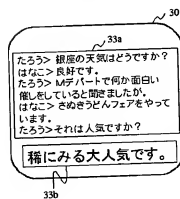 30
33a
たろう> 銀座の天気はどうですか?
はなこ> 良好です。
たろう> Mデパートで何か面白い
催しをしていると聞きましたが。
はなこ> さぬきうどんフェアをやって
います。
たろう>それは人気ですか?
稀にみる大人気です。
33b